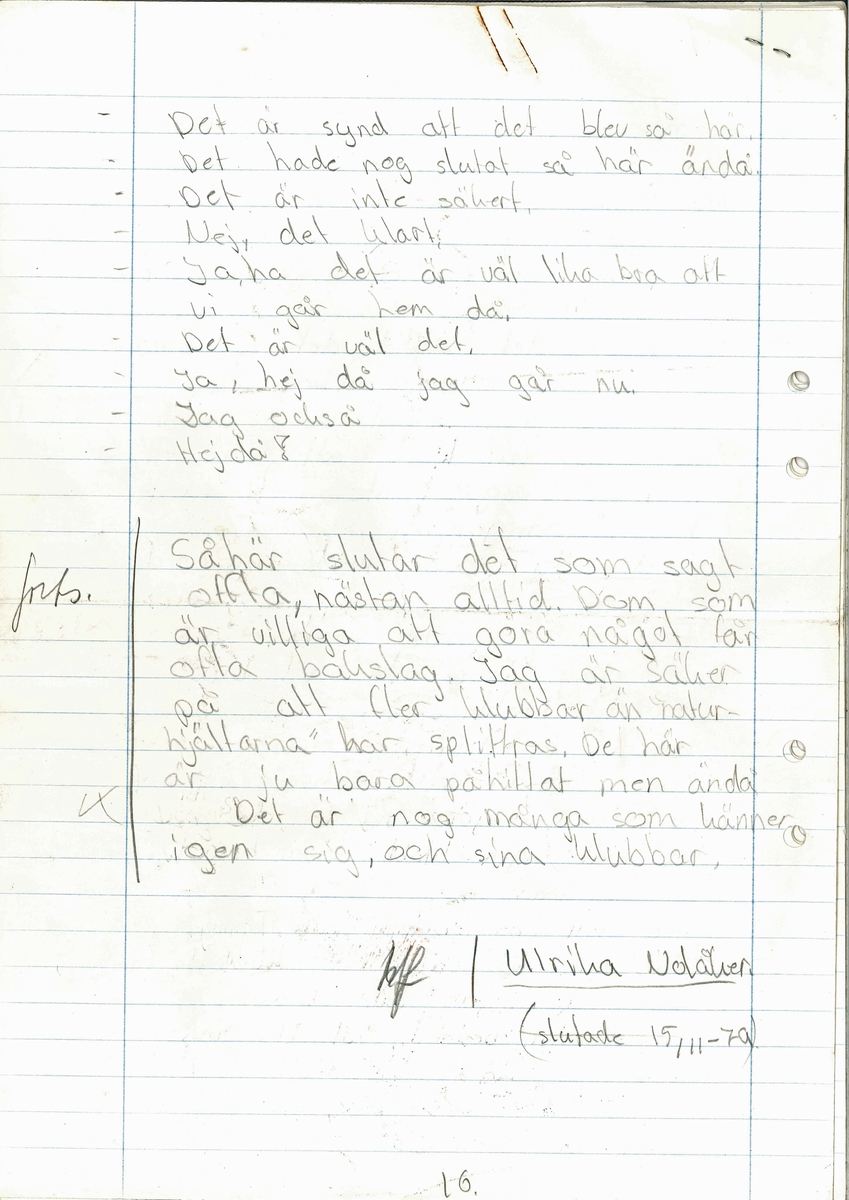 - Det är synd att det blev så här.
- Det hade nog slutat så här ändå.
- Det är inte säkert.
- Nej, det klart.
- Jaha det är väl lika bra att
vi går hem då.
- Det är väl det.
- Ja, hej då jag går nu.
- Jag också
- Hejdå!
Såhär slutar det som sagt
forts. offta, nästan alltid. Dom som
är villiga att göra något får
ofta bakslag. Jag är säker
på att fler klubbar än "natur-
hjältarna" har splittras. De här
är ju bara påhittat men ändå
Det är nog många som känner
igen sig, och sina klubbar.
Ulrika Nolåker
(slutade 15/11-79)
16.